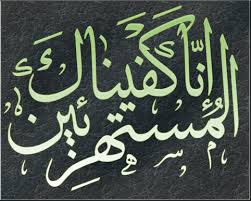 إنا كفيناك
المستهزئين